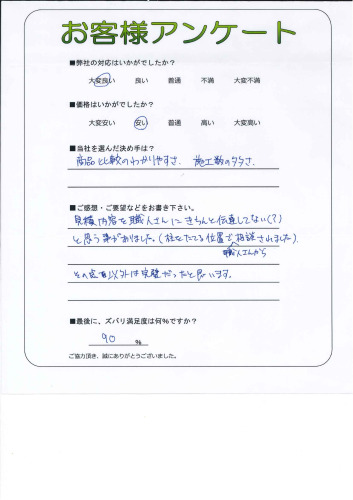 お客様アンケート
■弊社の対応はいかがでしたか?
大変良い 良い 普通 不満 大変不満
■価格はいかがでしたか?
大変安い 安い 普通 高い 大変高い
■当社を選んだ決め手は?
商品比較のわかりやすさ、施工数の多さ。
■ご感想・ご要望などをお書き下さい。
見積内容を職人さんにきちんと伝達してない(?)
と思う事がありました。(柱をたてる位置で相談されました)
職人さんから
その他以外は完璧だったと思います。
■最後に、ズバリ満足度は何%ですか?
90 %
ご協力頂き、誠にありがとうございました。